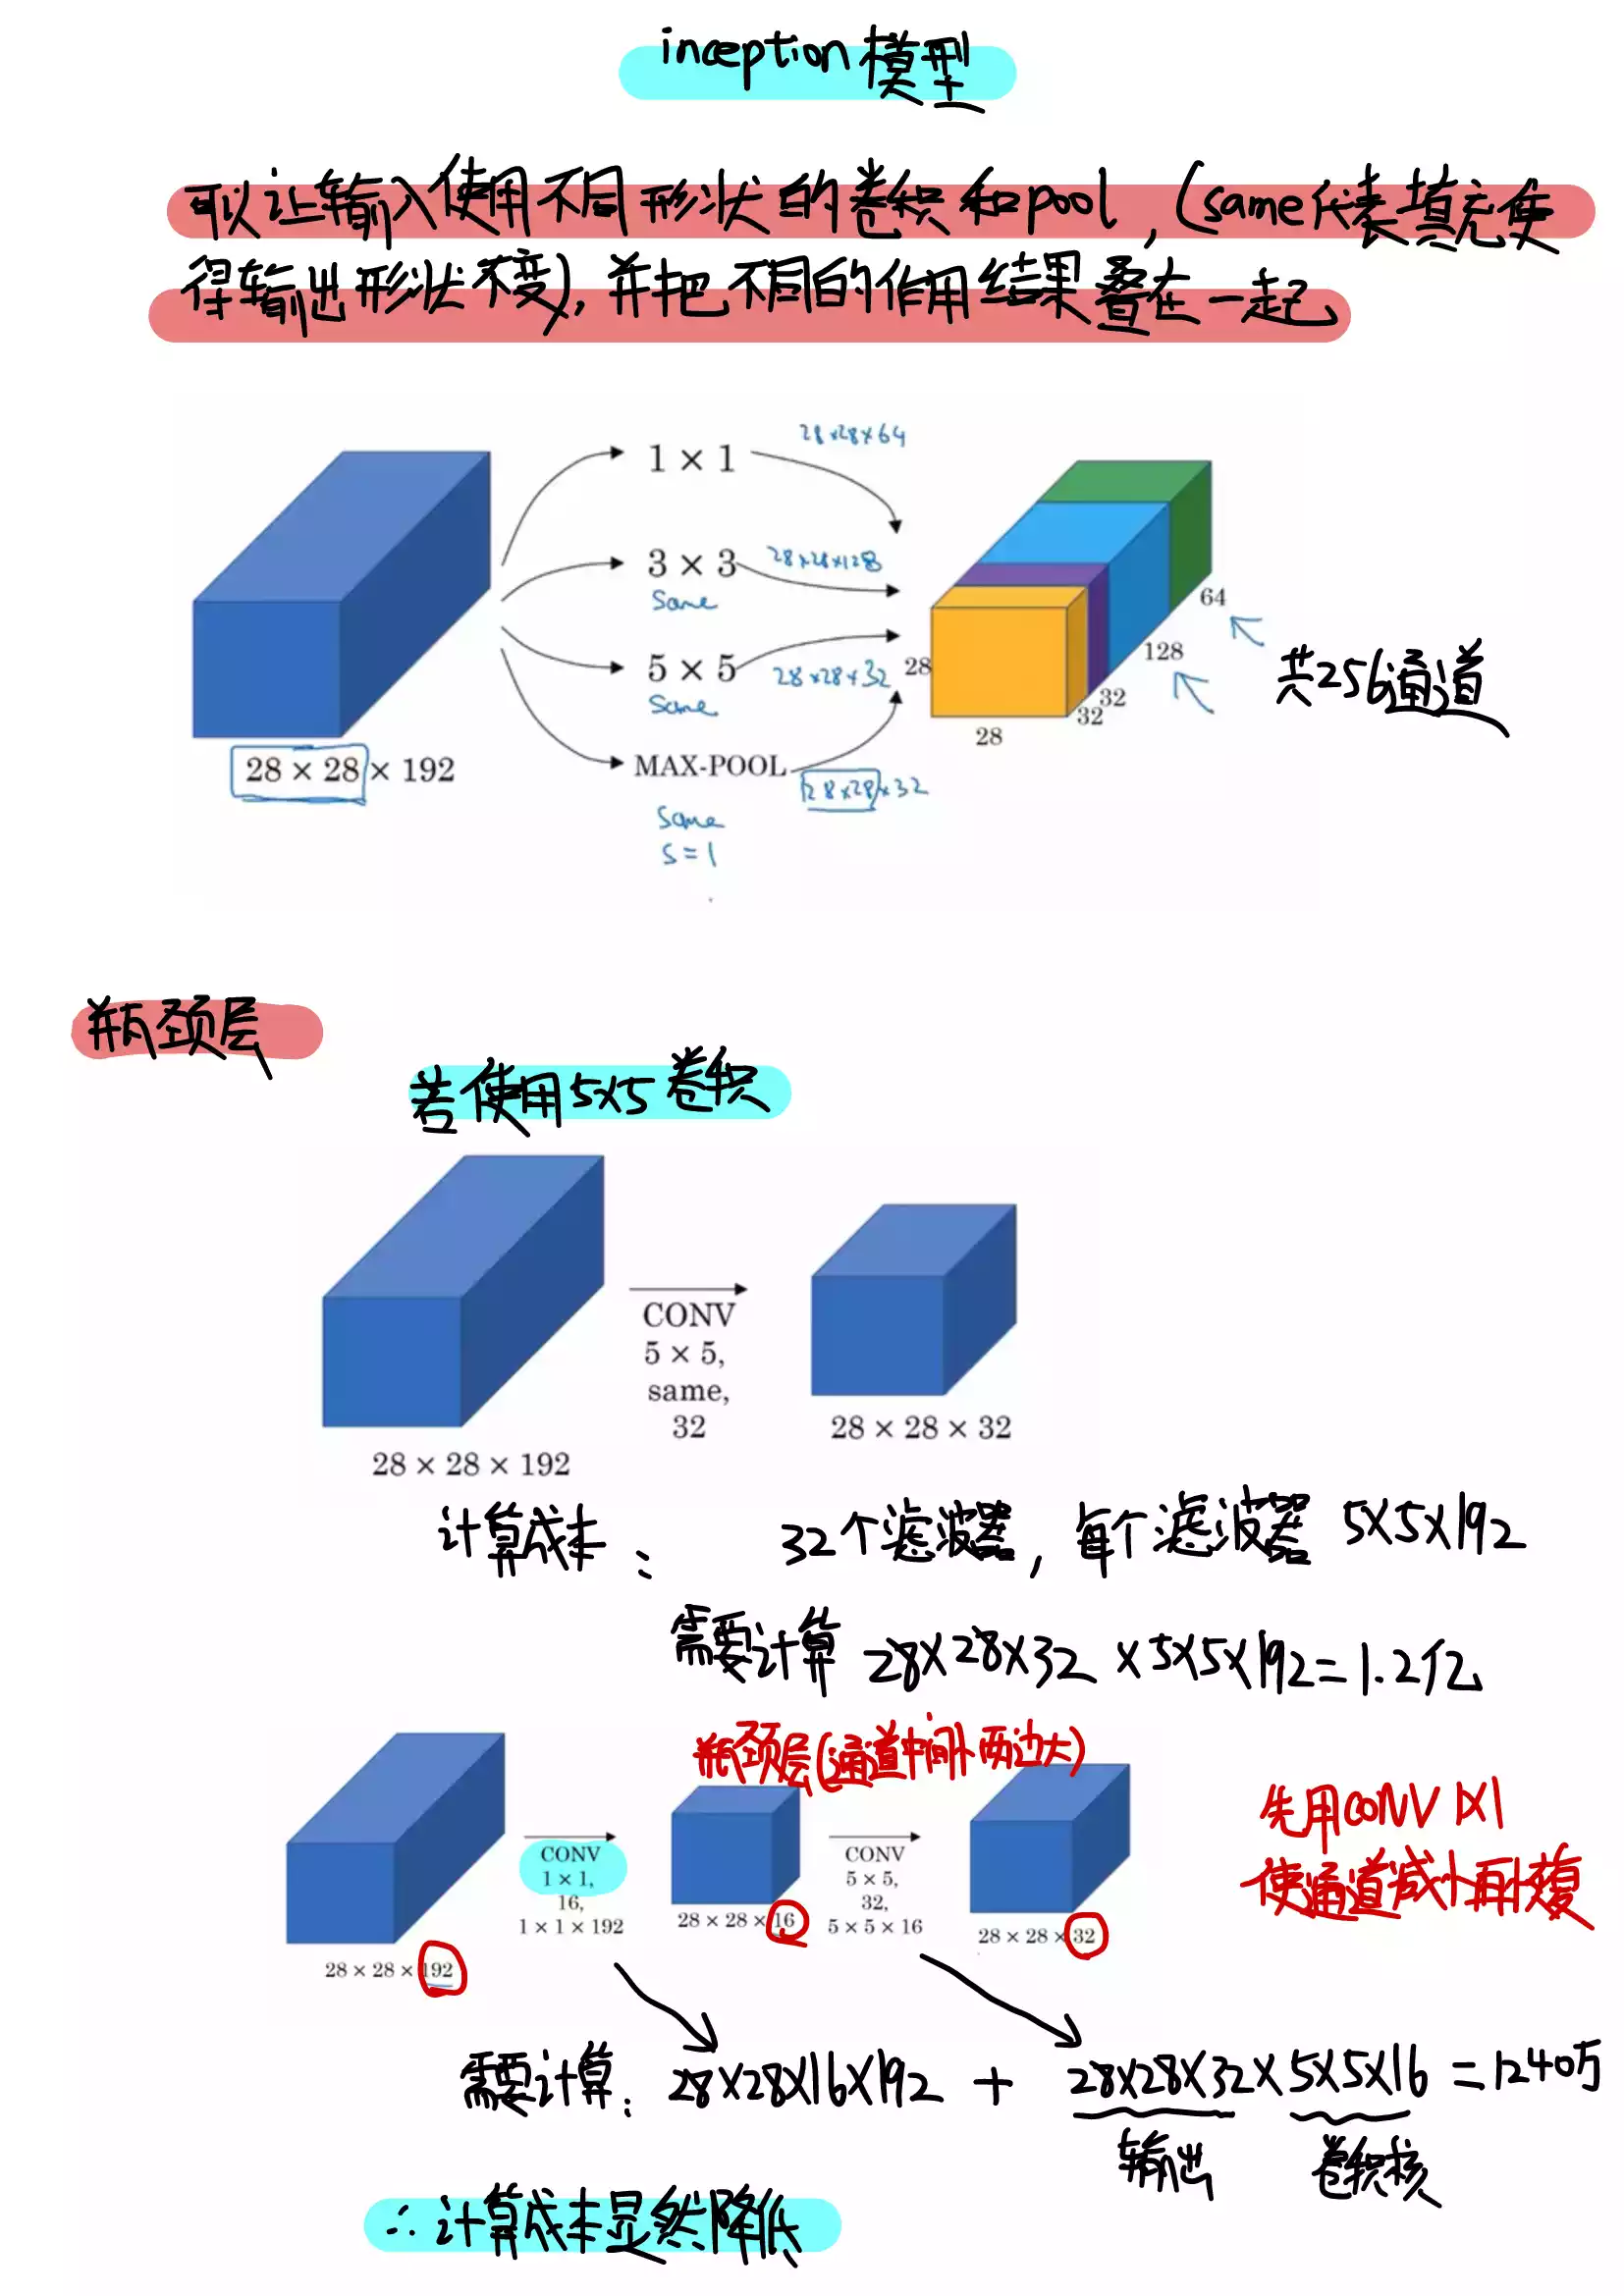 inception模型
可以让输入使用不同形状的卷积和pool,(same代表填充使
得输出形状不变),并把不同的作用结果叠在一起
1 × 1
28×28×64
3 × 3
same
28×28×128
5 × 5
same
28×28×32
MAX-POOL
same
s=1
28×28×32
28 × 28 × 192
28
28
32
32
128
64
共256通道
瓶颈层
若使用5×5卷积
CONV
5 × 5,
same,
32
28 × 28 × 192
28 × 28 × 32
计算成本: 32个滤波器,每个滤波器 5×5×192
需要计算 28×28×32 ×5×5×192=1.2亿
瓶颈层(通道中间小两边大)
CONV
1 × 1,
16,
1 × 1 × 192
28 × 28 × 192
28 × 28 × 16
CONV
5 × 5,
32,
5 × 5 × 16
28 × 28 × 32
先用CONV 1×1
使通道减小再恢复
需要计算: 28×28×16×192 + 28×28×32×5×5×16 =1240万
输出 卷积核
∴计算成本显然降低